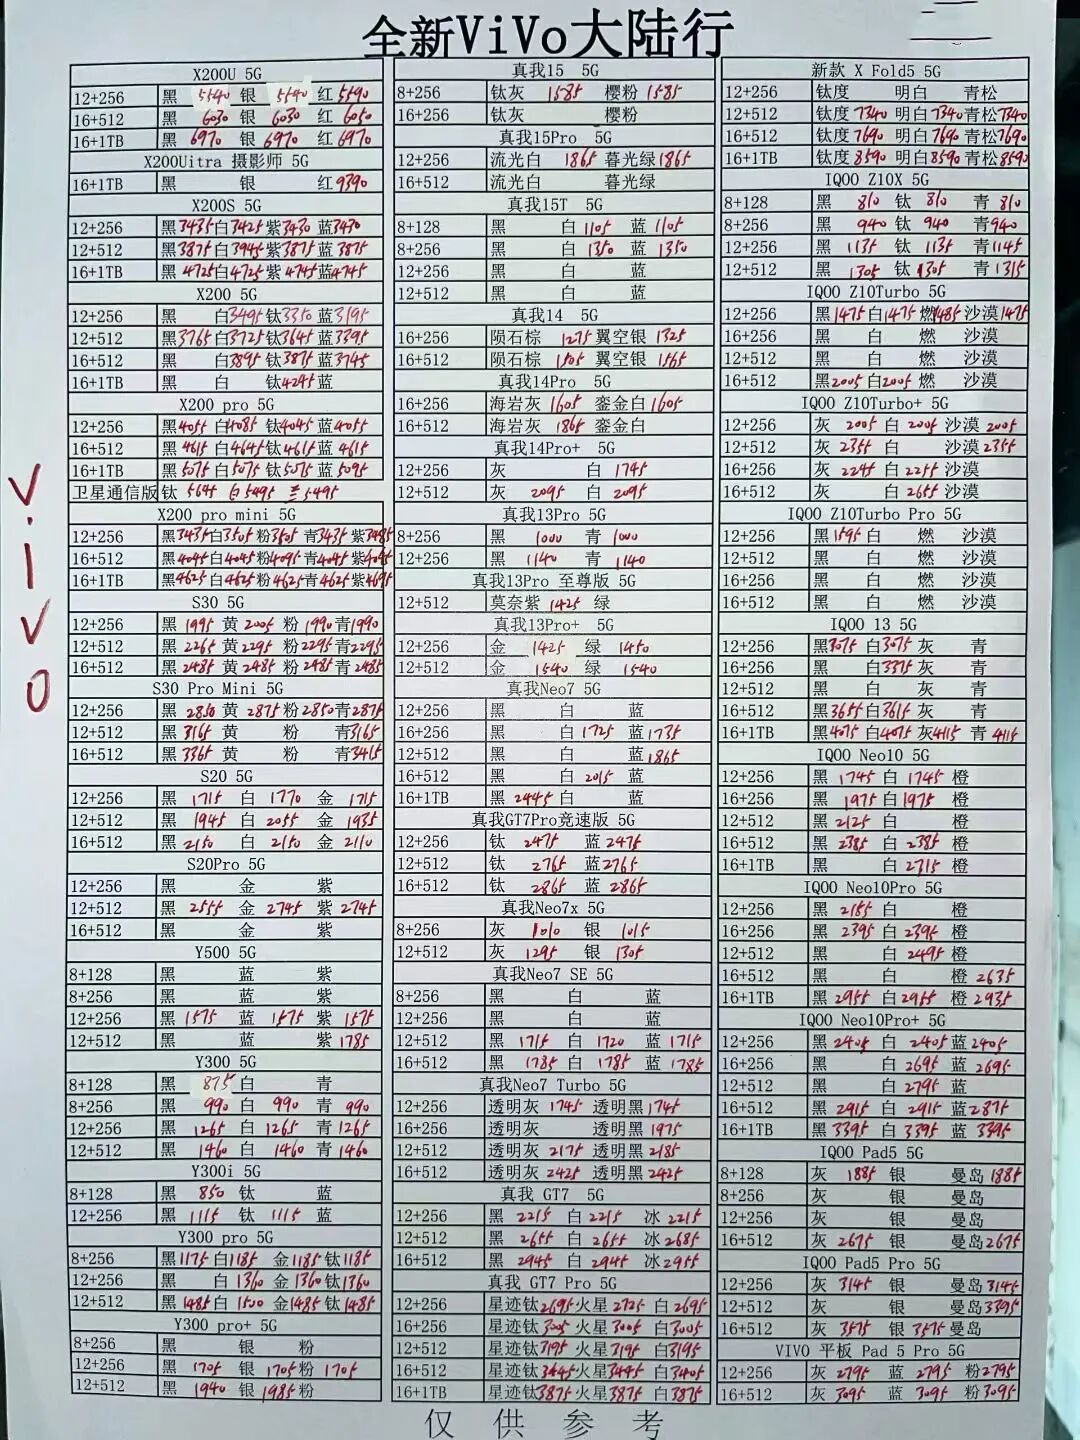 全新ViVo大陆行
ViVO
X200U 5G
12+256 黑 5540 银 5540 红 5590
16+512 黑 6030 银 6030 红 6050
16+1TB 黑 6970 银 6970 红 6970
X200Uitra 摄影师 5G
16+1TB 黑 银 红 9390
X200S 5G
12+256 黑 3435 白 3425 紫 3430 蓝 3430
12+512 黑 3875 白 3945 紫 3875 蓝 3875
16+1TB 黑 4725 白 4725 紫 4745 蓝 4745
X200 5G
12+256 黑 白 3495 钛 3350 蓝 3195
12+512 黑 3765 白 3725 钛 3645 蓝 3395
16+512 黑 白 3895 钛 3875 蓝 3745
16+1TB 黑 白 钛 4295 蓝
X200 pro 5G
12+256 黑 4055 白 4085 钛 4045 蓝 4055
16+512 黑 4615 白 4645 钛 4615 蓝 4615
16+1TB 黑 5075 白 5075 钛 5075 蓝 5095
卫星通信版 钛 5645 白 5495 兰 5495
X200 pro mini 5G
12+256 黑 3435 白 3505 粉 3505 青 3435 紫 3485
16+512 黑 4045 白 4045 粉 4095 青 4045 紫 4095
16+1TB 黑 4625 白 4625 粉 4625 青 4625 紫 4695
S30 5G
12+256 黑 1995 黄 2005 粉 1990 青 1990
12+512 黑 2265 黄 2295 粉 2295 青 2295
16+512 黑 2485 黄 2485 粉 2485 青 2485
S30 Pro Mini 5G
12+256 黑 2850 黄 2875 粉 2850 青 2875
12+512 黑 3165 黄 粉 青 3165
16+512 黑 3365 黄 粉 青 3415
S20 5G
12+256 黑 1715 白 1770 金 1715
12+512 黑 1945 白 2055 金 1935
16+512 黑 2150 白 2150 金 2110
S20Pro 5G
12+256 黑 金 紫
12+512 黑 2555 金 2745 紫 2745
16+512 黑 金 紫
Y500 5G
8+128 黑 蓝 紫
8+256 黑 蓝 紫
12+256 黑 1575 蓝 1575 紫 1575
12+512 黑 蓝 紫 1785
Y300 5G
8+128 黑 875 白 青
8+256 黑 990 白 990 青 990
12+256 黑 1265 白 1265 青 1265
12+512 黑 1460 白 1460 青 1460
Y300i 5G
8+128 黑 850 钛 蓝
12+256 黑 1115 钛 1115 蓝
Y300 pro 5G
8+256 黑 1175 白 1185 金 1185 钛 1185
12+256 黑 白 1360 金 1360 钛 1360
12+512 黑 1485 白 1500 金 1485 钛 1485
Y300 pro+ 5G
8+256 黑 银 粉
12+256 黑 1705 银 1705 粉 1705
12+512 黑 1940 银 1985 粉
真我15 5G
8+256 钛灰 1585 樱粉 1585
16+256 钛灰 樱粉
真我15Pro 5G
12+256 流光白 1865 暮光绿 1865
16+512 流光白 暮光绿
真我15T 5G
8+128 黑 白 1105 蓝 1105
8+256 黑 白 1350 蓝 1350
12+256 黑 白 蓝
12+512 黑 白 蓝
真我14 5G
16+256 陨石棕 1275 翼空银 1325
16+512 陨石棕 1505 翼空银 1565
真我14Pro 5G
16+256 海岩灰 1605 銮金白 1605
16+512 海岩灰 1865 銮金白
真我14Pro+ 5G
12+256 灰 白 1745
12+512 灰 2095 白 2095
真我13Pro 5G
8+256 黑 1000 青 1000
12+256 黑 1140 青 1140
真我13Pro 至尊版 5G
12+512 莫奈紫 1425 绿
真我13Pro+ 5G
12+256 金 1425 绿 1450
12+512 金 1540 绿 1540
真我Neo7 5G
12+256 黑 白 蓝
16+256 黑 白 1725 蓝 1735
12+512 黑 白 蓝 1865
16+512 黑 白 2015 蓝
16+1TB 黑 2445 白 蓝
真我GT7Pro竞速版 5G
12+256 钛 2475 蓝 2475
12+512 钛 2765 蓝 2765
16+512 钛 2865 蓝 2865
真我Neo7x 5G
8+256 灰 1010 银 1015
12+512 灰 1295 银 1305
真我Neo7 SE 5G
8+256 黑 白 蓝
12+256 黑 白 蓝
12+512 黑 1715 白 1720 蓝 1715
16+512 黑 1785 白 1785 蓝 1785
真我Neo7 Turbo 5G
12+256 透明灰 1745 透明黑 1745
16+256 透明灰 透明黑 1975
12+512 透明灰 2175 透明黑 2185
16+512 透明灰 2425 透明黑 2425
真我 GT7 5G
12+256 黑 2215 白 2215 冰 2215
12+512 黑 2655 白 2655 冰 2685
16+512 黑 2945 白 2945 冰 2955
真我 GT7 Pro 5G
12+256 星迹钛 2695 火星 2725 白 2695
16+256 星迹钛 3005 火星 3005 白 3005
12+512 星迹钛 3195 火星 3195 白 3195
16+512 星迹钛 3445 火星 3445 白 3405
16+1TB 星迹钛 3875 火星 3875 白 3875
新款 X Fold5 5G
12+256 钛度 明白 青松
12+512 钛度 7340 明白 7340 青松 7340
16+512 钛度 7690 明白 7690 青松 7690
16+1TB 钛度 8590 明白 8590 青松 8590
IQOO Z10X 5G
8+128 黑 810 钛 810 青 810
8+256 黑 940 钛 940 青 940
12+256 黑 1135 钛 1135 青 1145
12+512 黑 1305 钛 1305 青 1315
IQOO Z10Turbo 5G
12+256 黑 1475 白 1475 燃 1485 沙漠 1475
16+256 黑 白 燃 沙漠
12+512 黑 白 燃 沙漠
16+512 黑 2005 白 2005 燃 沙漠
IQOO Z10Turbo+ 5G
12+256 灰 2005 白 2005 沙漠 2005
12+512 灰 2355 白 沙漠 2355
16+256 灰 2245 白 2255 沙漠
16+512 灰 白 2655 沙漠
IQOO Z10Turbo Pro 5G
12+256 黑 1595 白 燃 沙漠
12+512 黑 白 燃 沙漠
16+256 黑 白 燃 沙漠
16+512 黑 白 燃 沙漠
IQOO 13 5G
12+256 黑 3075 白 3075 灰 青
16+256 黑 白 3375 灰 青
12+512 黑 白 灰 青
16+512 黑 3655 白 3615 灰 青
16+1TB 黑 4075 白 4075 灰 4115 青 4115
IQOO Neo10 5G
12+256 黑 1745 白 1745 橙
16+256 黑 1975 白 1975 橙
12+512 黑 2125 白 橙
16+512 黑 2385 白 2385 橙
16+1TB 黑 白 2715 橙
IQOO Neo10Pro 5G
12+256 黑 2185 白 橙
16+256 黑 2395 白 2395 橙
12+512 黑 白 2495 橙
16+512 黑 白 橙 2635
16+1TB 黑 2955 白 2955 橙 2935
IQOO Neo10Pro+ 5G
12+256 黑 2405 白 2405 蓝 2405
16+256 黑 白 2695 蓝 2695
12+512 黑 白 2795 蓝
16+512 黑 2915 白 2915 蓝 2875
16+1TB 黑 3395 白 3395 蓝 3395
IQOO Pad5 5G
8+128 灰 1885 银 曼岛 1885
8+256 灰 银 曼岛
12+256 灰 银 曼岛
16+512 灰 2675 银 曼岛 2675
IQOO Pad5 Pro 5G
12+256 灰 3145 银 曼岛 3145
12+512 灰 银 曼岛 3395
16+512 灰 3575 银 3575 曼岛
VIVO 平板 Pad 5 Pro 5G
12+256 灰 2795 蓝 2795 粉 2795
16+512 灰 3095 蓝 3095 粉 3095
仅供参考